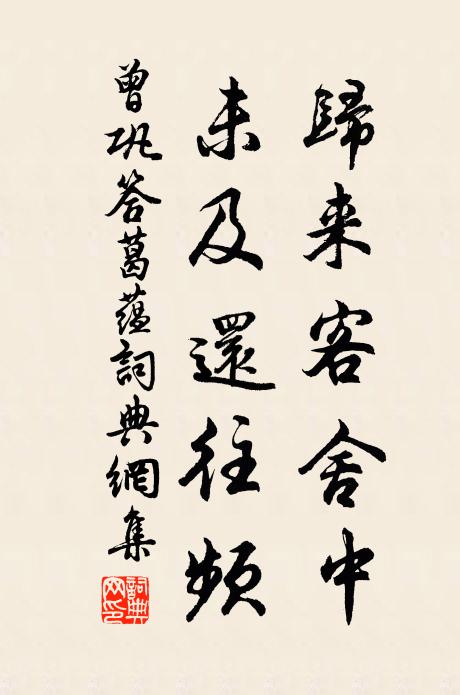 歸来客舍中
未及還往頻
曾巩答葛蕴詞典網集
詞典网印